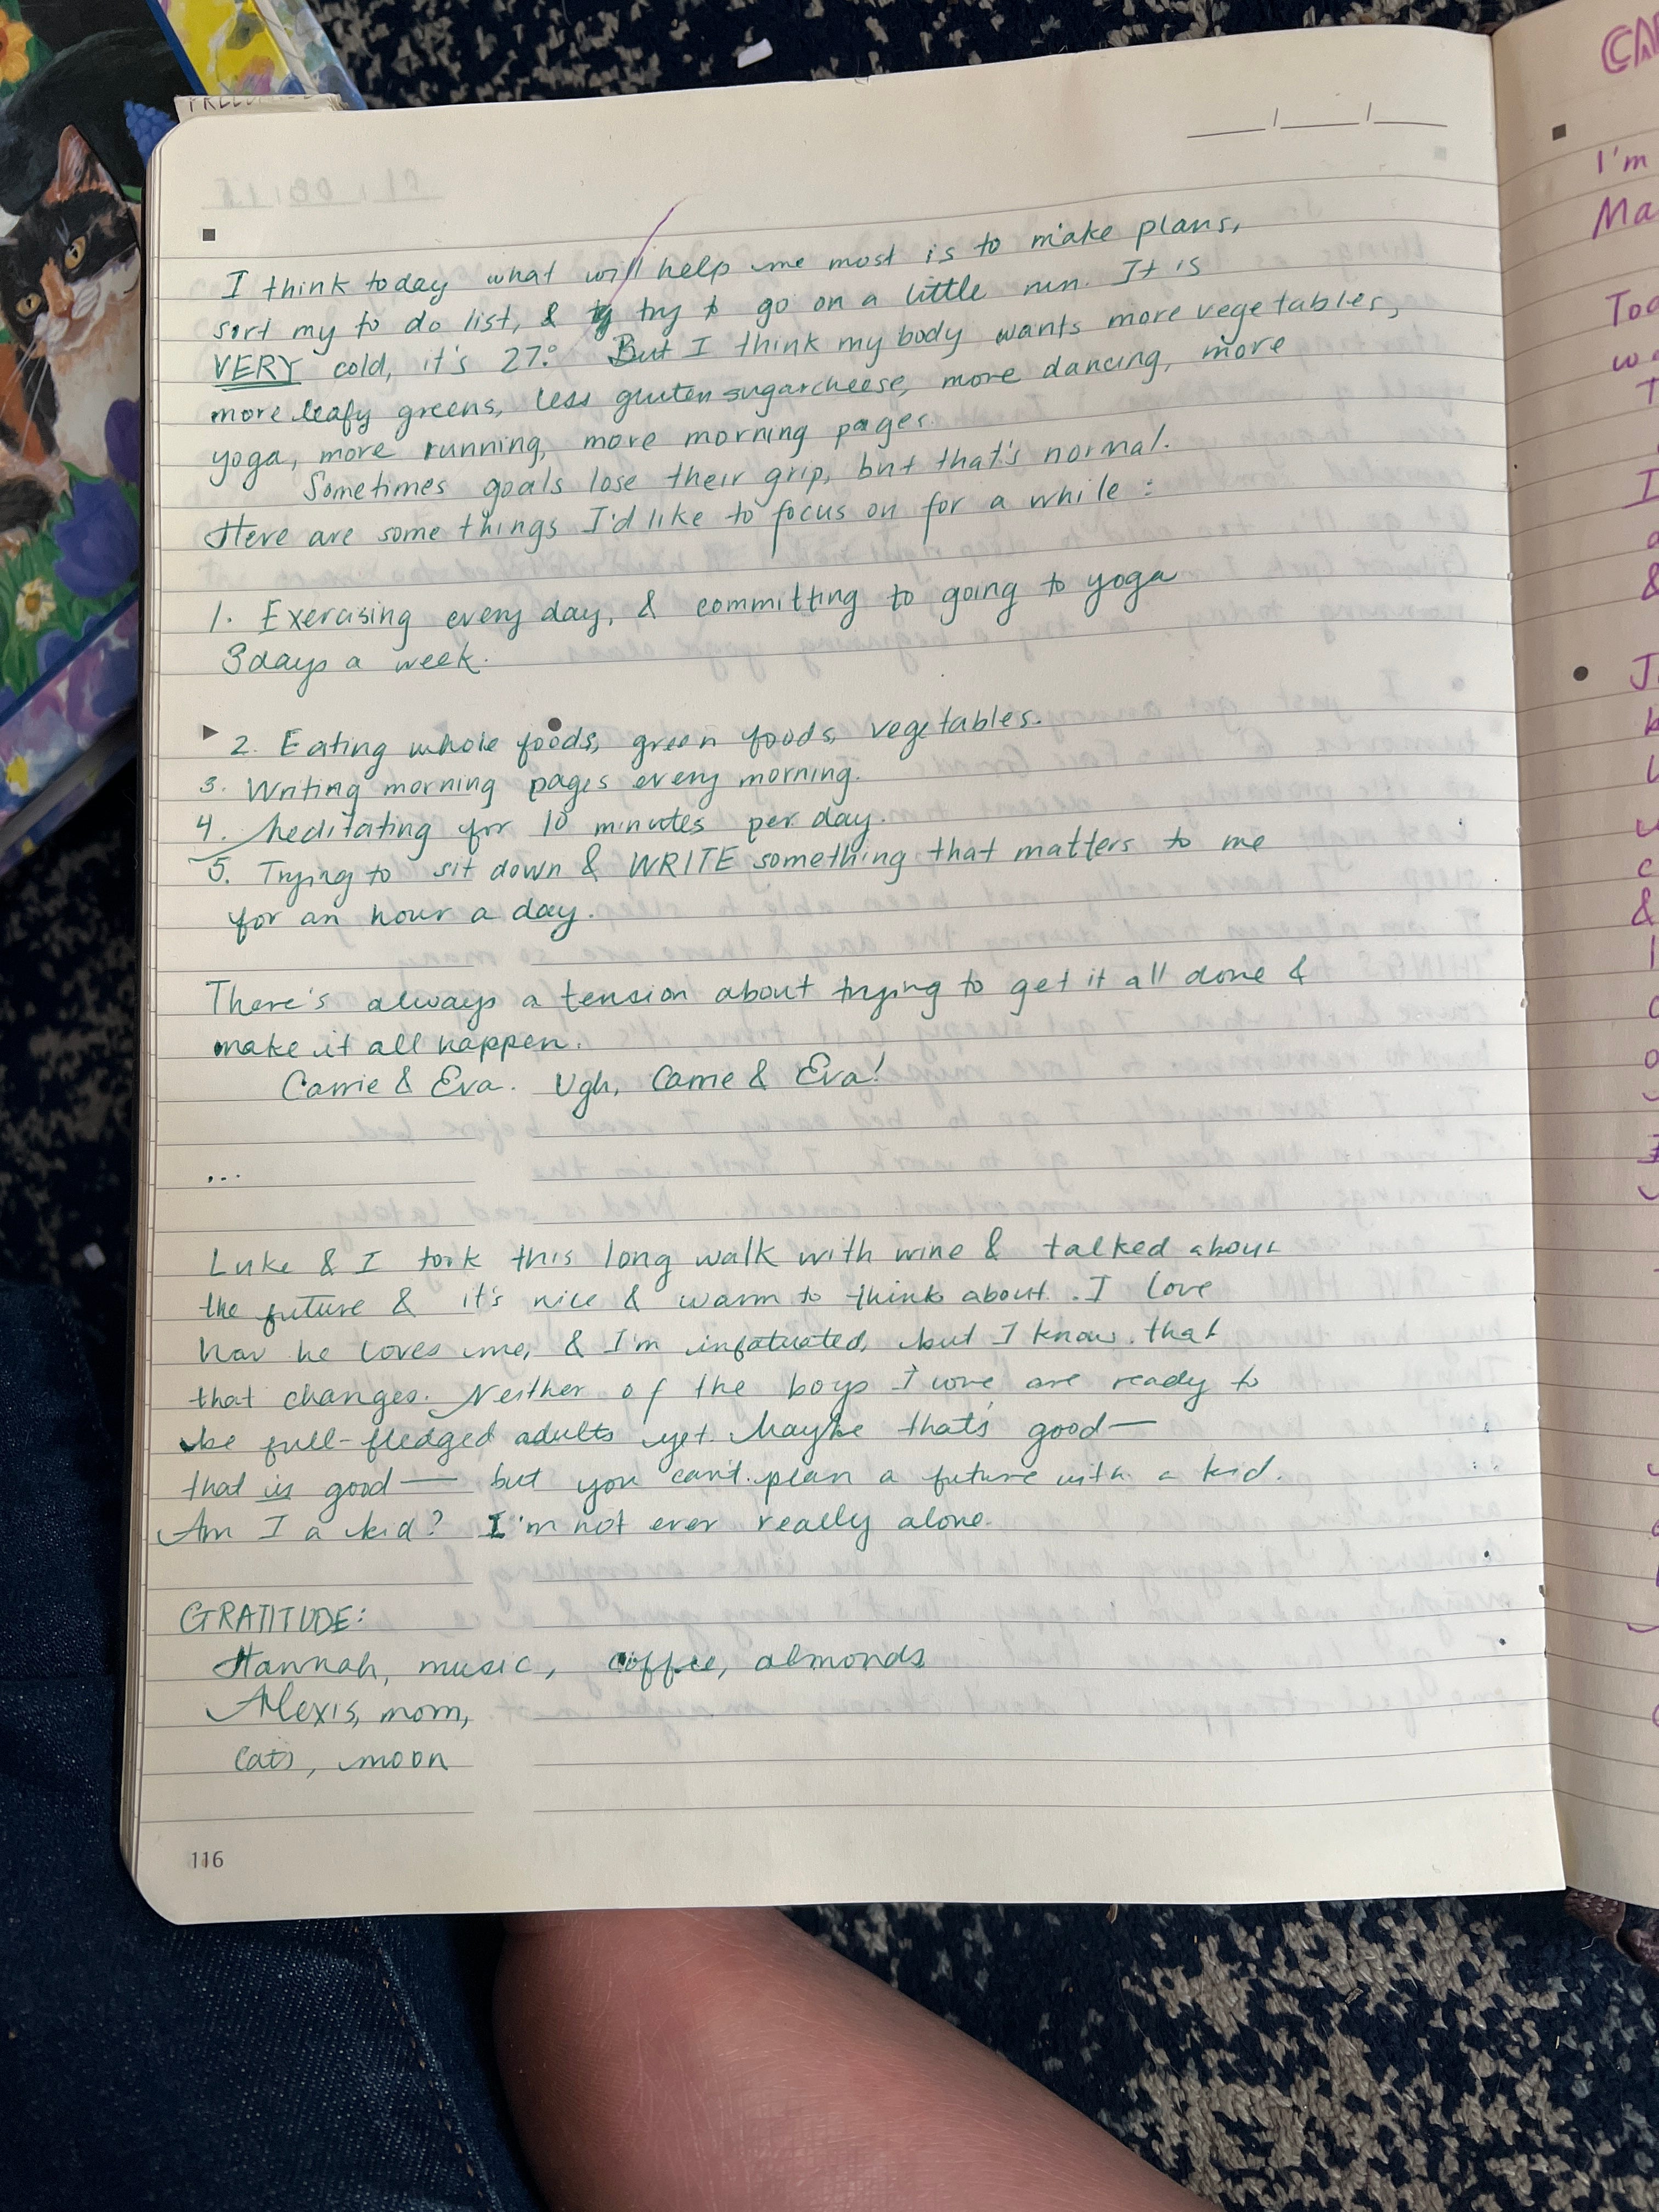 I think today what will help me most is to make plans,
sort my to do list, & try to go on a little run. It is
VERY cold, it's 27.° But I think my body wants more vegetables,
more leafy greens, less gluten sugar cheese, more dancing, more
yoga, more running, more morning pages.
Sometimes goals lose their grip, but that's normal.
Here are some things I'd like to focus on for a while:
1. Exercising every day, & committing to going to yoga
3 days a week.
2. Eating whole foods, green foods, vegetables.
3. Writing morning pages every morning.
4. Meditating for 10 minutes per day.
5. Trying to sit down & WRITE something that matters to me
for an hour a day.
There's always a tension about trying to get it all done &
make it all happen.
Carrie & Eva. Ugh, Carrie & Eva!
...
Luke & I took this long walk with wine & talked about
the future & it's nice & warm to think about. I love
how he loves me, & I'm infatuated, but I know that
that changes. Neither of the boys I love are ready to
be full-fledged adults yet. Maybe that's good—
that is good— but you can't plan a future with a kid.
Am I a kid? I'm not ever really alone.
GRATITUDE:
Hannah, music, coffee, almonds
Alexis, mom,
cats, moon
116
I'm
I
&
&